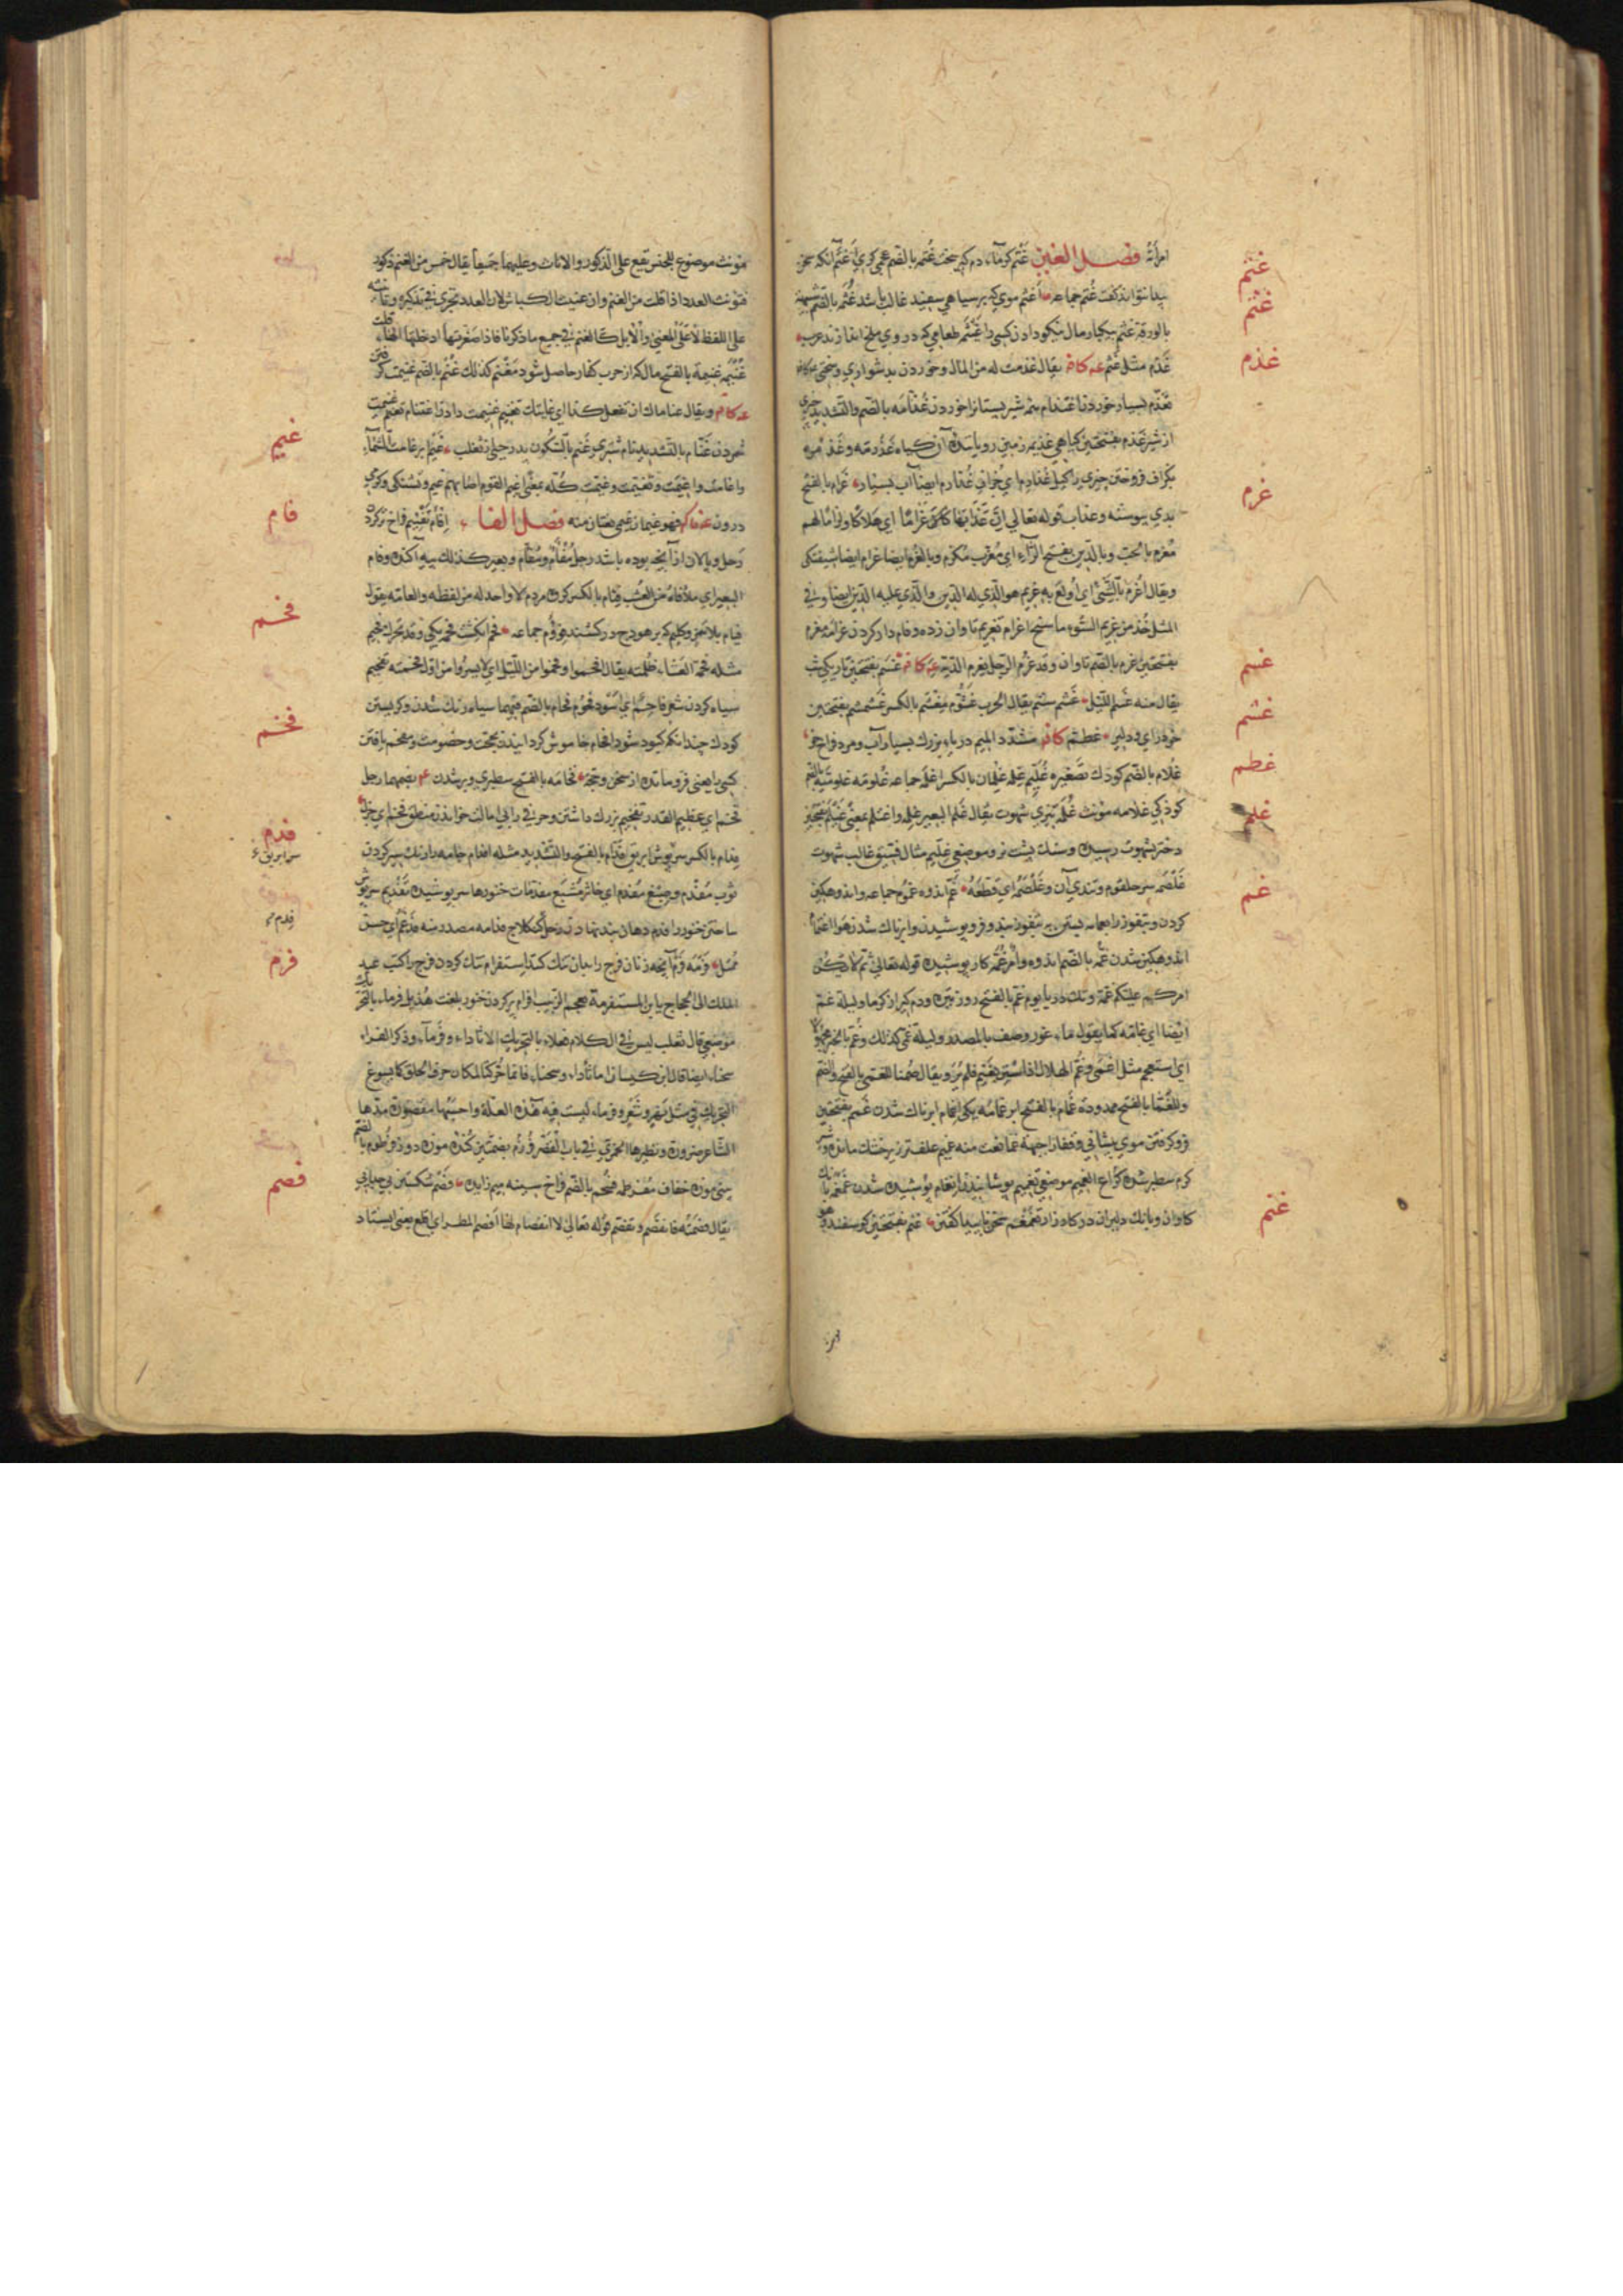 غتم
امرأة فصل الغين غتم كرما، دم كير سخت غتمه بالضم عجمي كري اغتم آنكه سخن
غثم
پيدا نتواند گفت غتم جماعه اغثم موي كه بر سياهي سپيد غالب باشد غثمه بالضم
بالورقة غثم يكبار مال نيكو دادن كسي را غثيمه طعامي كه دروي ملخ اندازند
غذم
غذم مثل غثم عه كاف يقال غذمت له من المال وخوردن بدشواري وسختي
تغذم بسيار خوردن اغتذام همه شير پستان را خوردن غذامه بالضم والتشديد چيزي
از شير غذم بفتحتين گياهي غذيمه زميني روياننده آن گياه غذرمه وغذمره
غرم
بگزاف فروختن چيزي را كيل غذارم اي جزاف غذارم ايضا آب بسيار غرام بالفتح
بدي پيوسته وعذاب قوله تعالى ان عذابها كان غراما اي هلاكا ولزاما لهم
مغرم بالحب وبالدين بفتح الراء اي مغرب مكرم وبالغرم ايضا غرام ايضا شيفتگي
ويقال اغرم بالشيء اي اولع به غريم هو الذي له الدين والذي عليه الدين ايضا وفي
المثل خذ من غريم السوء ما سنح اغرام تغريم تاوان زده وفام دار كردن غرامه مغرم
غسم
بفتحتين غرم بالضم تاوان وقد غرم الرجل يغرم الدية عه كاف غسم بفتحتين تاريكي شب
غشم
يقال منه غسم الليل غشم ستم يقال الحرب غشوم مغشم بالكسر غشمشم بفتحتين
غطم
خودراي ودلير غطم كاف مشدد الميم درياء بزرك بسيار آب ومرد فراخ خو
غلم
غلام بالضم كودك تصغيره غليم غلمه غلمان بالكسر اغلمه جماعه غلومه غلوميه بالضم
كودكي غلامه مونث غلمه تيزي شهوت يقال غلم البعير غلمه واغتلم بمعنى غيلم
دختر بشهوت رسيده وسنگ پشت نر وموضعي غليم مثال فسيق غالب شهوت
غم
غلصمه سر حلقوم وتندي آن وغلصمه اي قطعه غم اندوه غموم جماعه واندوهگين
كردن
اندوهگين شدن غمه بالضم اندوه وامر غمه كار پوشيده قوله تعالى ثم لا يكن
امركم عليكم غمة وتنك دريا يوم غم بالفتح روز تيره ودم گير از گرما وليلة غم
ايضا اي غامه كما يقول ماء غور وصف بالمصدر وليلة غمى كذلك وغم بالخبر
اي استعجم مثل اغمى وغم الهلال اذا ستره غيم فلم ير ويقال صمنا للغمى بالفتح والضم
وللغما بالفتح ممدودة غمام بالفتح ابر غمامه يكي اغمام ابرناك شدن غمم بفتحتين
فرو گرفتن موي پيشاني وقفا را جبهة غما نعت منه غميم علف تر زير خشك مانده
كرم سطبر شده كراع الغميم موضعي تغميم پوشانيدن انغمام پوشيده شدن غمغمه بانك
غنم
گاوان وبانك دليران در كارزار تغمغم سخن ناپيدا گفتن غنم بفتحتين گوسفند
مونث موضوع للجنس تقع على الذكور والاناث وعليهما جميعا يقال خمس من الغنم ذكور
فتونث العدد اذا قلت من الغنم وان عنيت الكباش لان العدد تجري في تذكيره وتانيثه
على اللفظ لا على المعنى والابل كالغنم في جميع ما ذكرنا فاذا صغرتها ادخلتها الهاء قلت
غنيمه غنيمة بالفتح مال كه از حرب كفار حاصل شود مغنم كذلك غنم بالضم غنيمت گرفتن
عه كاف ويقال غناماك ان تفعل كذا اي غايتك تغنيم غنيمت دادن اغتنام تغنم غنيمت
غيم
شمردن غنام بالتشديد نام شتري وغنم بالسكون پدر حيي از تغلب غيم ابر غامت السماء
واغامت واغيمت وتغيمت وغيمت كله بمعنى اغيم القوم اصابهم غيم وتشنگي وگرمي
فام
درون عه كاف فهو غيمان غيمى نعتان منه فصل الفا افام تفئيم فراخ كردن
رحل وپالان از آنچه بوده باشد رحل مفأم ومفام وبعير كذلك پيه آكنده وفام
البعير اي ملأ فاه من العشب فئام بالكسر گروه مردم لا واحد له من لفظه والعامة يقول
فحم
فيام بلا همز وگليم كه بر هودج درگشند فؤوم جماعه فحم انگشت فحمه يكي وقد تحرك فحيم
مثله فحمة العشاء ظلمته يقال افحموا وفحموا من الليل اي لا يسيروا من اول فحمته تفحيم
سياه كردن شعر فاحم اي اسود فحوم فحام بالضم فيهما سياه رنگ شدن وگريستن
فخم
كودك چندانكه كبود شود افحام خاموش گردانيدن بحجت وخصومت ومفحم يافتن
كسي را يعني فرو مانده از سخن وحجة فخامه بالفتح سطبري وبزرگ شدن بضمهما رجل
فخم اي عظيم القدر تفخيم بزرك داشتن وحرفي را بي امالت خواندن منطق فخم اي جزل
فدم
سر ابريق
فدام بالكسر سرپوش ابريق فدام بالفتح والتشديد مثله افدام جامه را رنك سير كردن
ثوب مفدم وصبغ مفدم اي خاثر مشبع مفدمات خنورها سر پوشيده تفديم سرپوش
فدم
ساختن خنور را فدم دهان بند نهادن رجل گنگلاج فدامه مصدر منه فدغم اي حسن
فرم
ممتل فرمه وفرم آنچه زنان فرج را بدان تنك كنند استفرام تنك كردن فرج را كتب عبد
الملك الى الحجاج يا ابن المستفرمة بعجم الزبيب افرام پر كردن خنور بلغت هذيل فرماء بالتحريك
موضعي قال ثعلب ليس في الكلام فعلاء بالتحريك الا ثاداء وفرماء وذكر الفراء
سحناء ايضا قال ابن كيسان اما ثاداء وسحناء فانما حركتا لمكان حرف الحلق كما يسوغ
التحريك في مثل نهر وشعر وفرماء ليست فيه هذه العلة واحسبها مقصورة مدها
الشاعر ضرورة ونظيرها الجمزى في باب القصر فرزم بضمتين كنده موزه دوز فرطوم بالضم
فصم
بيني موزه خفاف مفرطمه فسحم بالضم فراخ سينه ميم زايده فصم شكستن بي جدايي
يقال فصمته فانفصم وتفصم قوله تعالى لا انفصام لها افصم المطر اي اقلع يعني ايستاد